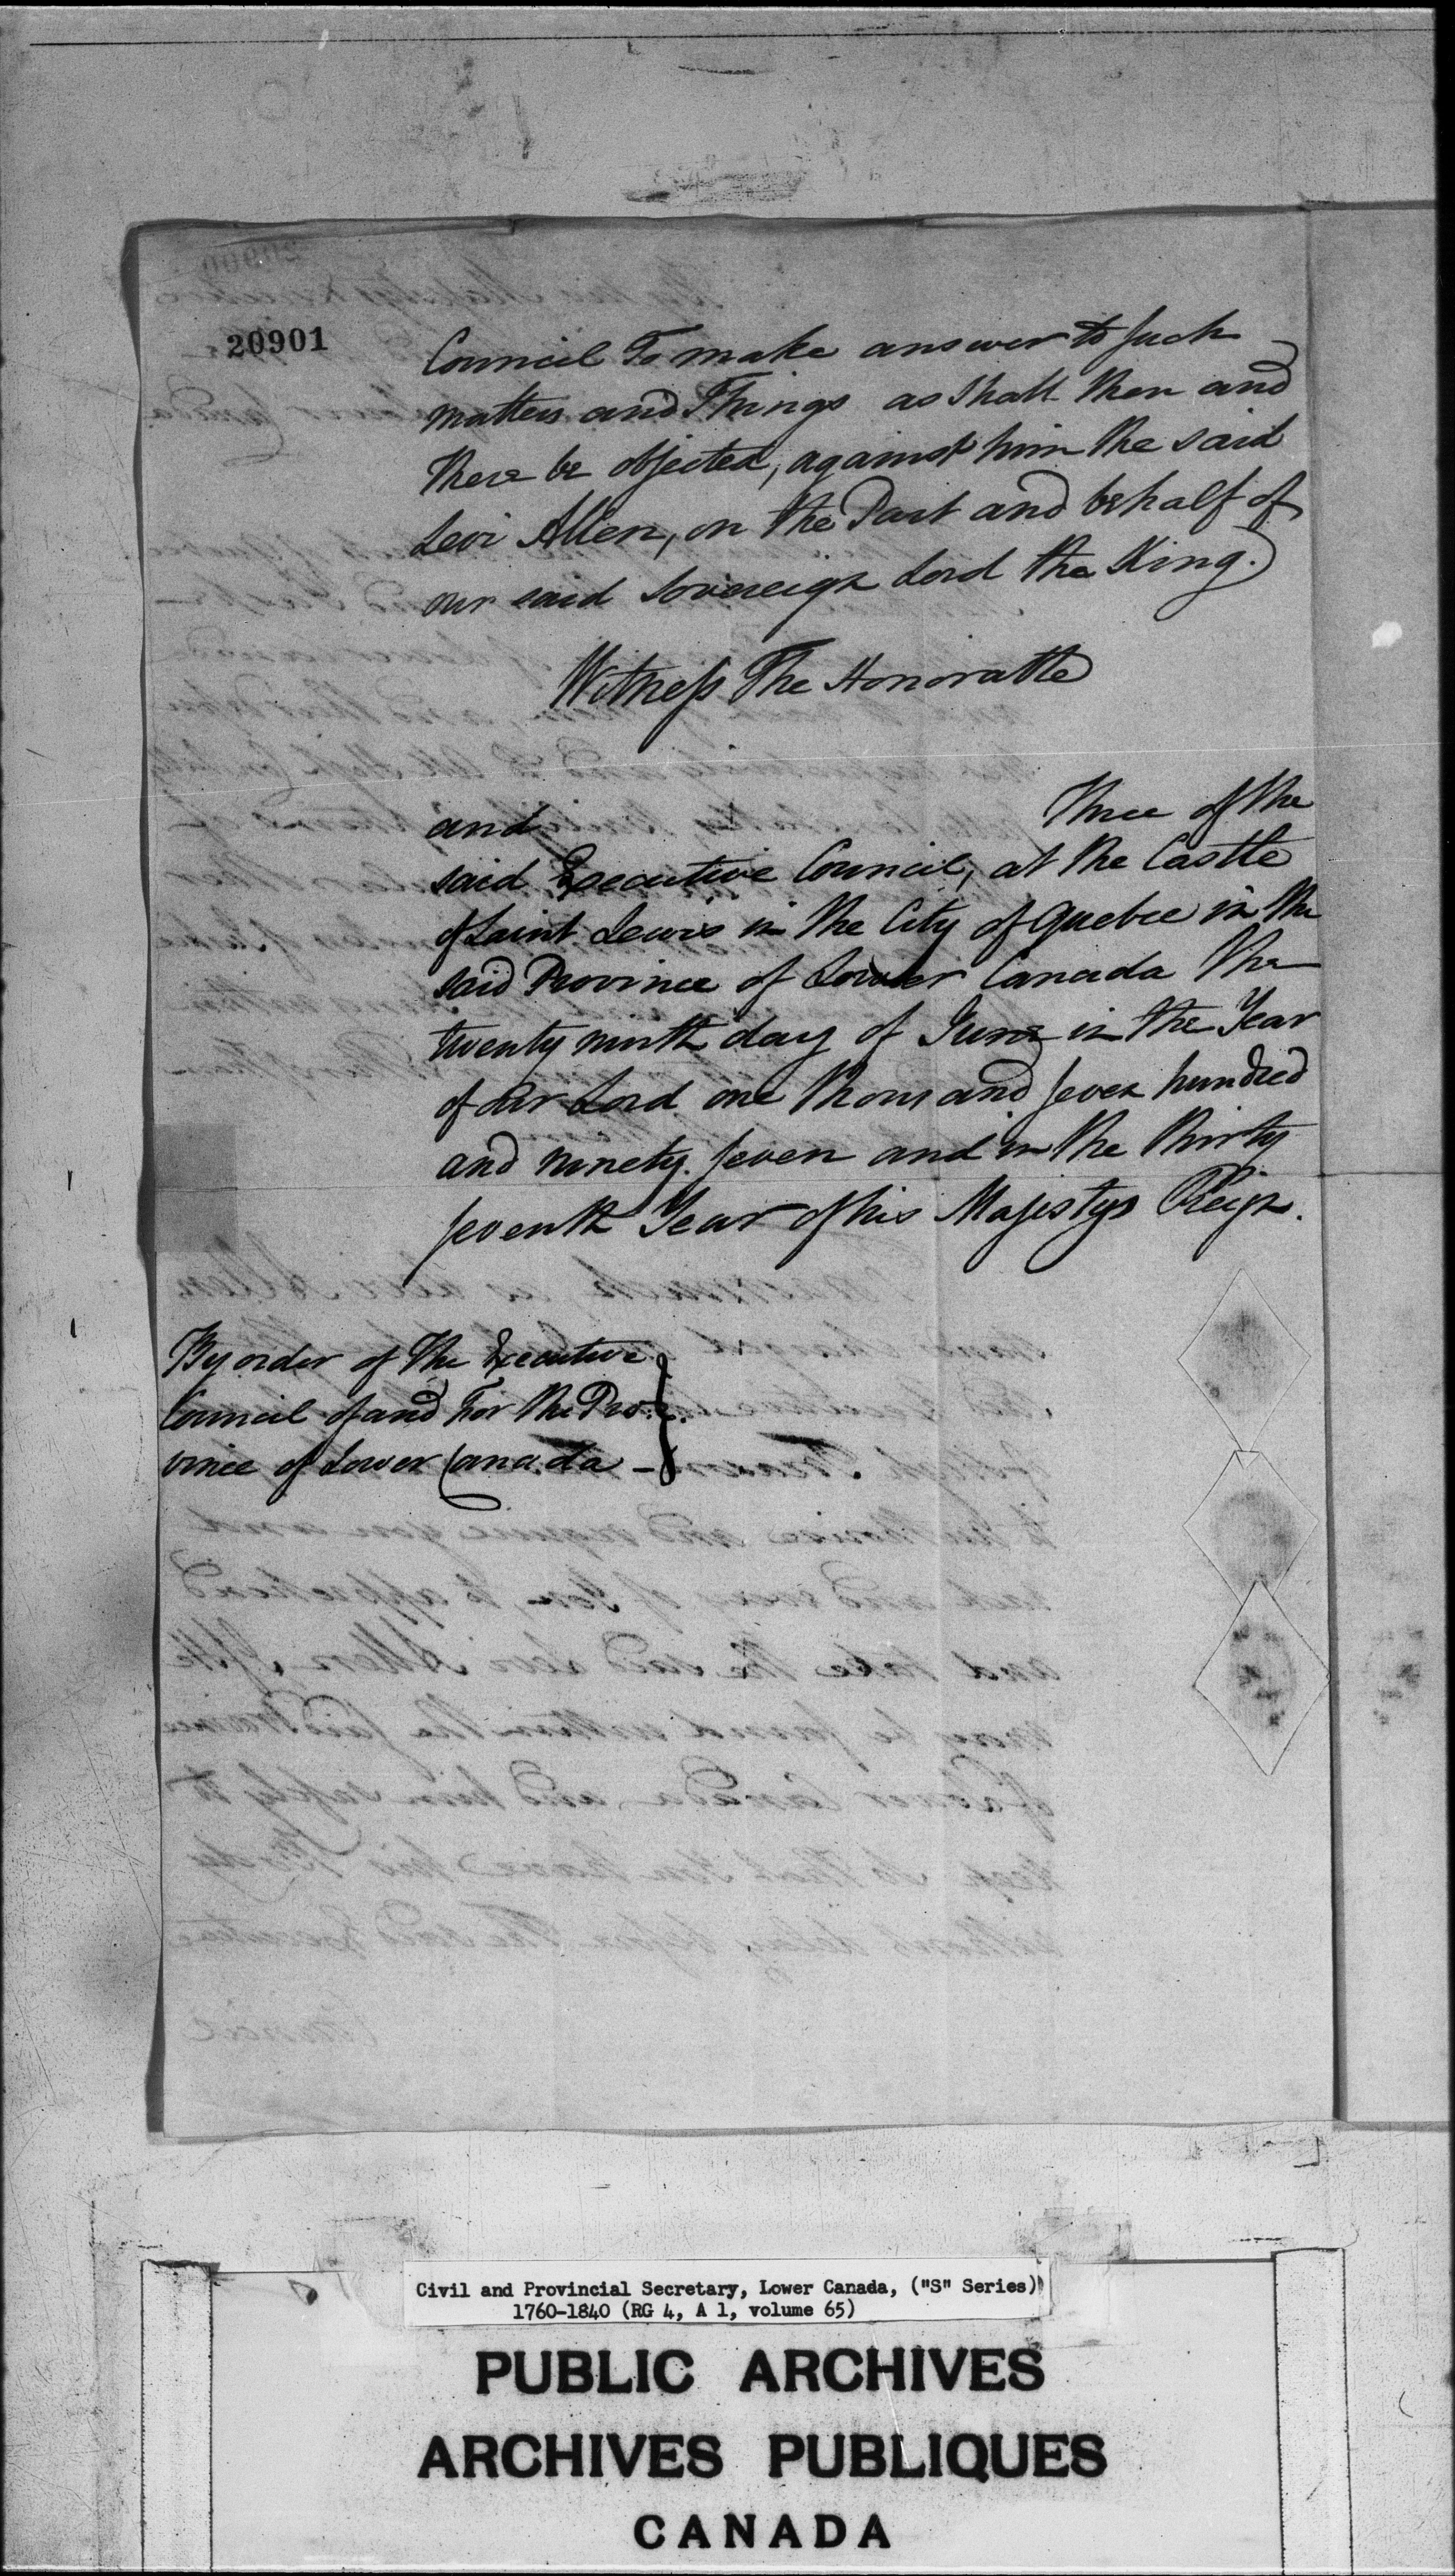 20901
Council To make answer to such
matters and Things as shall then and
there be objected, against him the said
Levi Allen, on the Part and behalf of
our said Sovereign Lord the King.
Witness The Honorable
and Three of the
said Executive Council, at the Castle
of Saint Lewis in the City of Quebec in the
said Province of Lower Canada the
twenty ninth day of June in the Year
of our Lord one thousand seven hundred
and ninety seven and in the thirty
seventh Year of his Majestys Reign.
By order of the Executive
Council of and For the Pro-
vince of Lower Canada -
Civil and Provincial Secretary, Lower Canada, ("S" Series)
1760-1840 (RG 4, A 1, volume 65)
PUBLIC ARCHIVES
ARCHIVES PUBLIQUES
CANADA